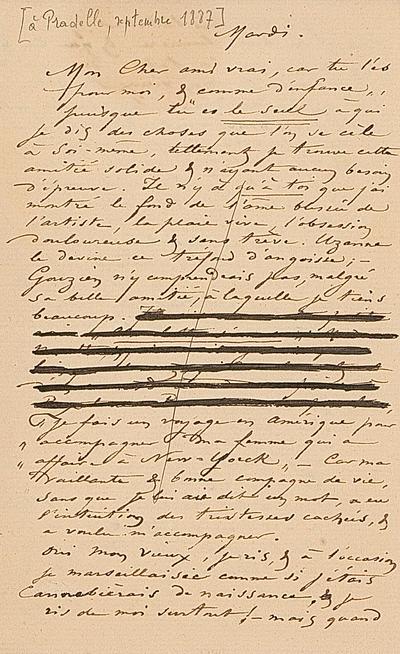 [à Pradelle, septembre 1887]
Mardi.
Mon Cher ami vrai, car tu l'es
pour moi, & comme d'enfance,
puisque tu es le seul à qui
je dis des choses que l'on se cèle
à soi-même, tellement je trouve cette
amitié solide & n'ayant aucun besoin
d'épreuve. Il n'y a qu'à toi que j'ai
montré le fond de l'âme
l'artiste, la plaie vive, l'obsession
douloureuse & sans trêve. Uzanne
le devine ce tréfond d'angoisse ; —
Gouzien n'y comprendrais pas, malgré
sa belle amitié, à laquelle je tiens
beaucoup.
Je fais un voyage en Amérique pour
"accompagner ma femme qui a
"affaire à New-Yorck". — Car ma
vaillante & bonne compagne de vie,
sans que je lui aie dit un mot, a eu
l'intuition des tristesses cachées, &
a voulu m'accompagner.
Oui mon vieux, je ris, & à l'occasion
je marseillaise comme si j'étais
Cannebièrais de naissance, & je
ris de moi surtout ! — mais quand